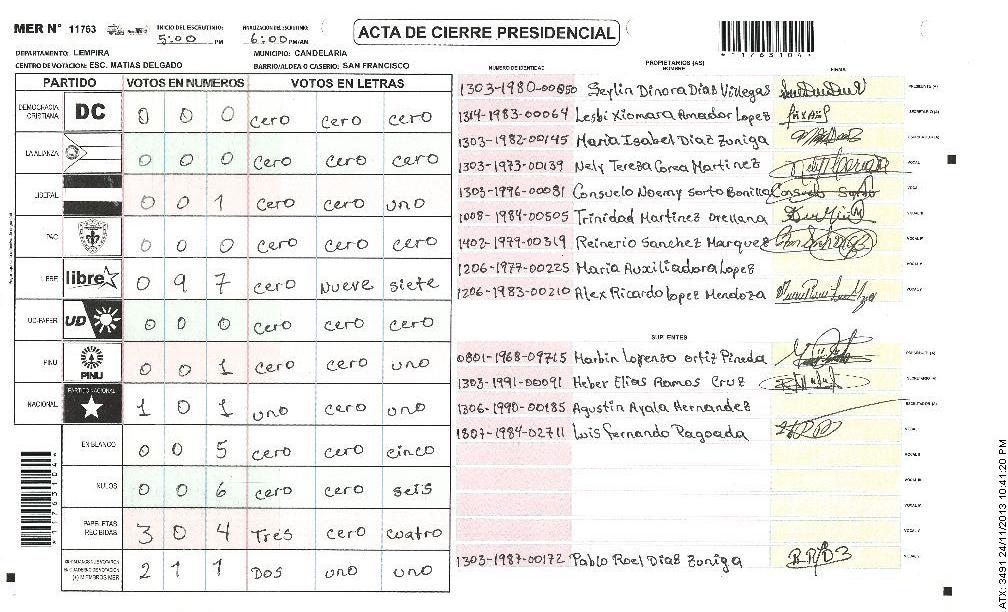 MER N° 11763
INICIO DEL ESCRUTINIO: 5:00 PM
FINALIZACION DEL ESCRUTINIO: 6:00 PM/AM
ACTA DE CIERRE PRESIDENCIAL
*11763104*
DEPARTAMENTO: LEMPIRA
MUNICIPIO: CANDELARIA
CENTRO DE VOTACION: ESC. MATIAS DELGADO
BARRIO/ALDEA O CASERIO: SAN FRANCISCO
PARTIDO VOTOS EN NUMEROS VOTOS EN LETRAS
DEMOCRACIA CRISTIANA DC 0 0 0 cero cero cero
LA ALIANZA 0 0 0 cero cero cero
LIBERAL 0 0 1 cero cero uno
PAC 0 0 0 cero cero cero
LIBRE libre 0 9 7 cero nueve siete
UD-FAPER UD 0 0 0 cero cero cero
PINU PINU 0 0 1 cero cero uno
NACIONAL PARTIDO NACIONAL 1 0 1 uno cero uno
EN BLANCO 0 0 5 cero cero cinco
NULOS 0 0 6 cero cero seis
PAPELETAS RECIBIDAS 3 0 4 Tres cero cuatro
(+) MIEMBROS MER 2 1 1 Dos uno uno
NUMERO DE IDENTIDAD PROPIETARIOS (AS) NOMBRE FIRMA
1303-1980-00050 Seylin Dinora Dias Villegas PRESIDENTE (A)
1314-1983-00064 Lesbi Xiomara Amador Lopez SECRETARIO (A)
1303-1982-00145 Maria Isabel Diaz Zuniga ESCRUTADOR (A)
1303-1973-00139 Nely Tereza Corea Martinez VOCAL
1303-1996-00031 Consuelo Noemy Sorto Bonilla Consuelo Sorto
1008-1984-00505 Trinidad Martinez Orellana
1402-1979-00319 Reinerio Sanchez Marquez
1206-1977-00225 Maria Auxiliadora Lopez
1206-1983-00210 Alex Ricardo Lopez Mendoza
SUPLENTES
0801-1968-09715 Marbin Lorenzo Ortiz Pineda PRESIDENTE (A)
1303-1991-00091 Heber Elias Ramos Cruz SECRETARIO (A)
1306-1990-00185 Agustin Ayala Hernandez ESCRUTADOR (A)
1807-1984-02711 Luis Fernando Pagoada
1303-1987-00172 Pablo Roel Dias Zuniga
*11763104*
ATX: 3491 24/11/2013 10:41:20 PM